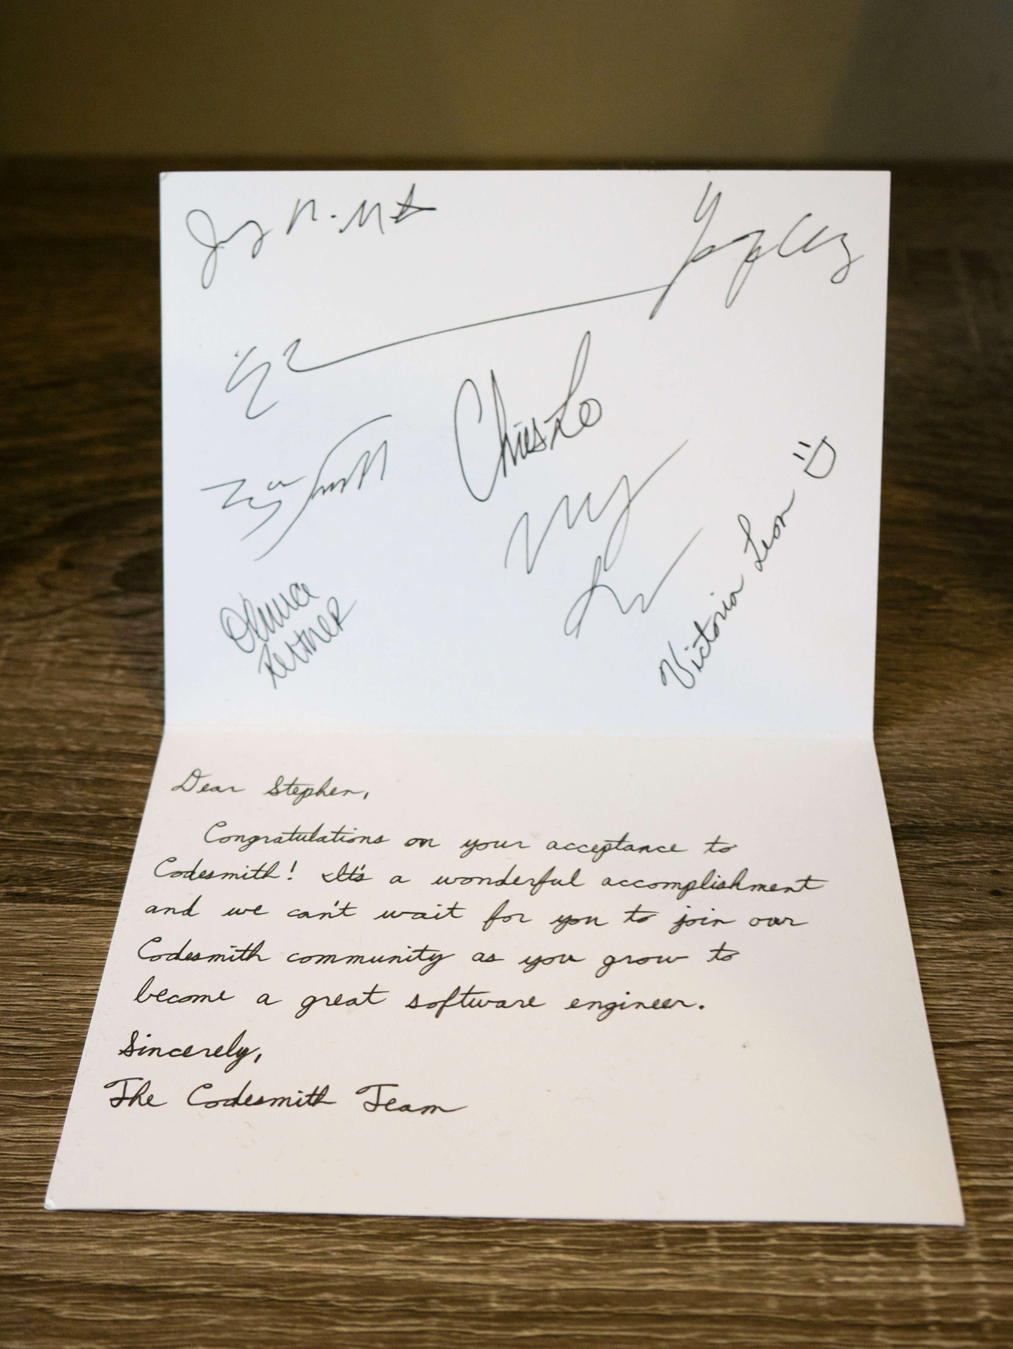 Chris Lo
Victoria Leon
Dear Stephen,
Congratulations on your acceptance to
Codesmith! It's a wonderful accomplishment
and we can't wait for you to join our
Codesmith community as you grow to
become a great software engineer.
Sincerely,
The Codesmith Team